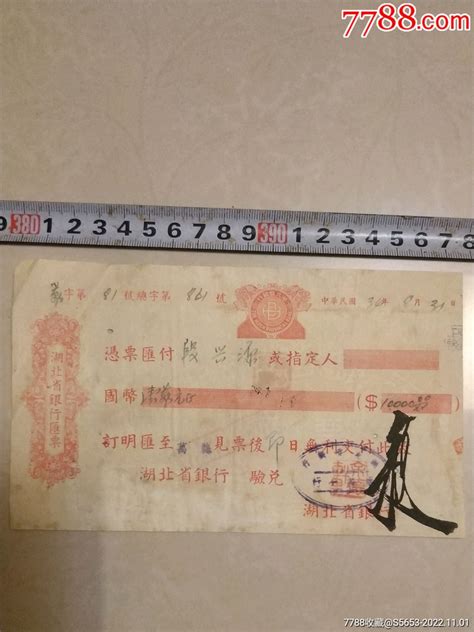 7788.com
中国收藏热线
9 380 1 2 3 4 5 6 7 8 9 390 1 2 3 4 5 6 7 8
字第 81 號總字第 861 號
中華民國 36 年 8 月 31 日
湖北省銀行匯票
憑票匯付 段兴源 或指定人
國幣
($ 10000
訂明匯至 萬縣 見票後 即 日無利交付此致
湖北省銀行 驗兑
湖北省銀行
7788收藏@S5653-2022.11.01